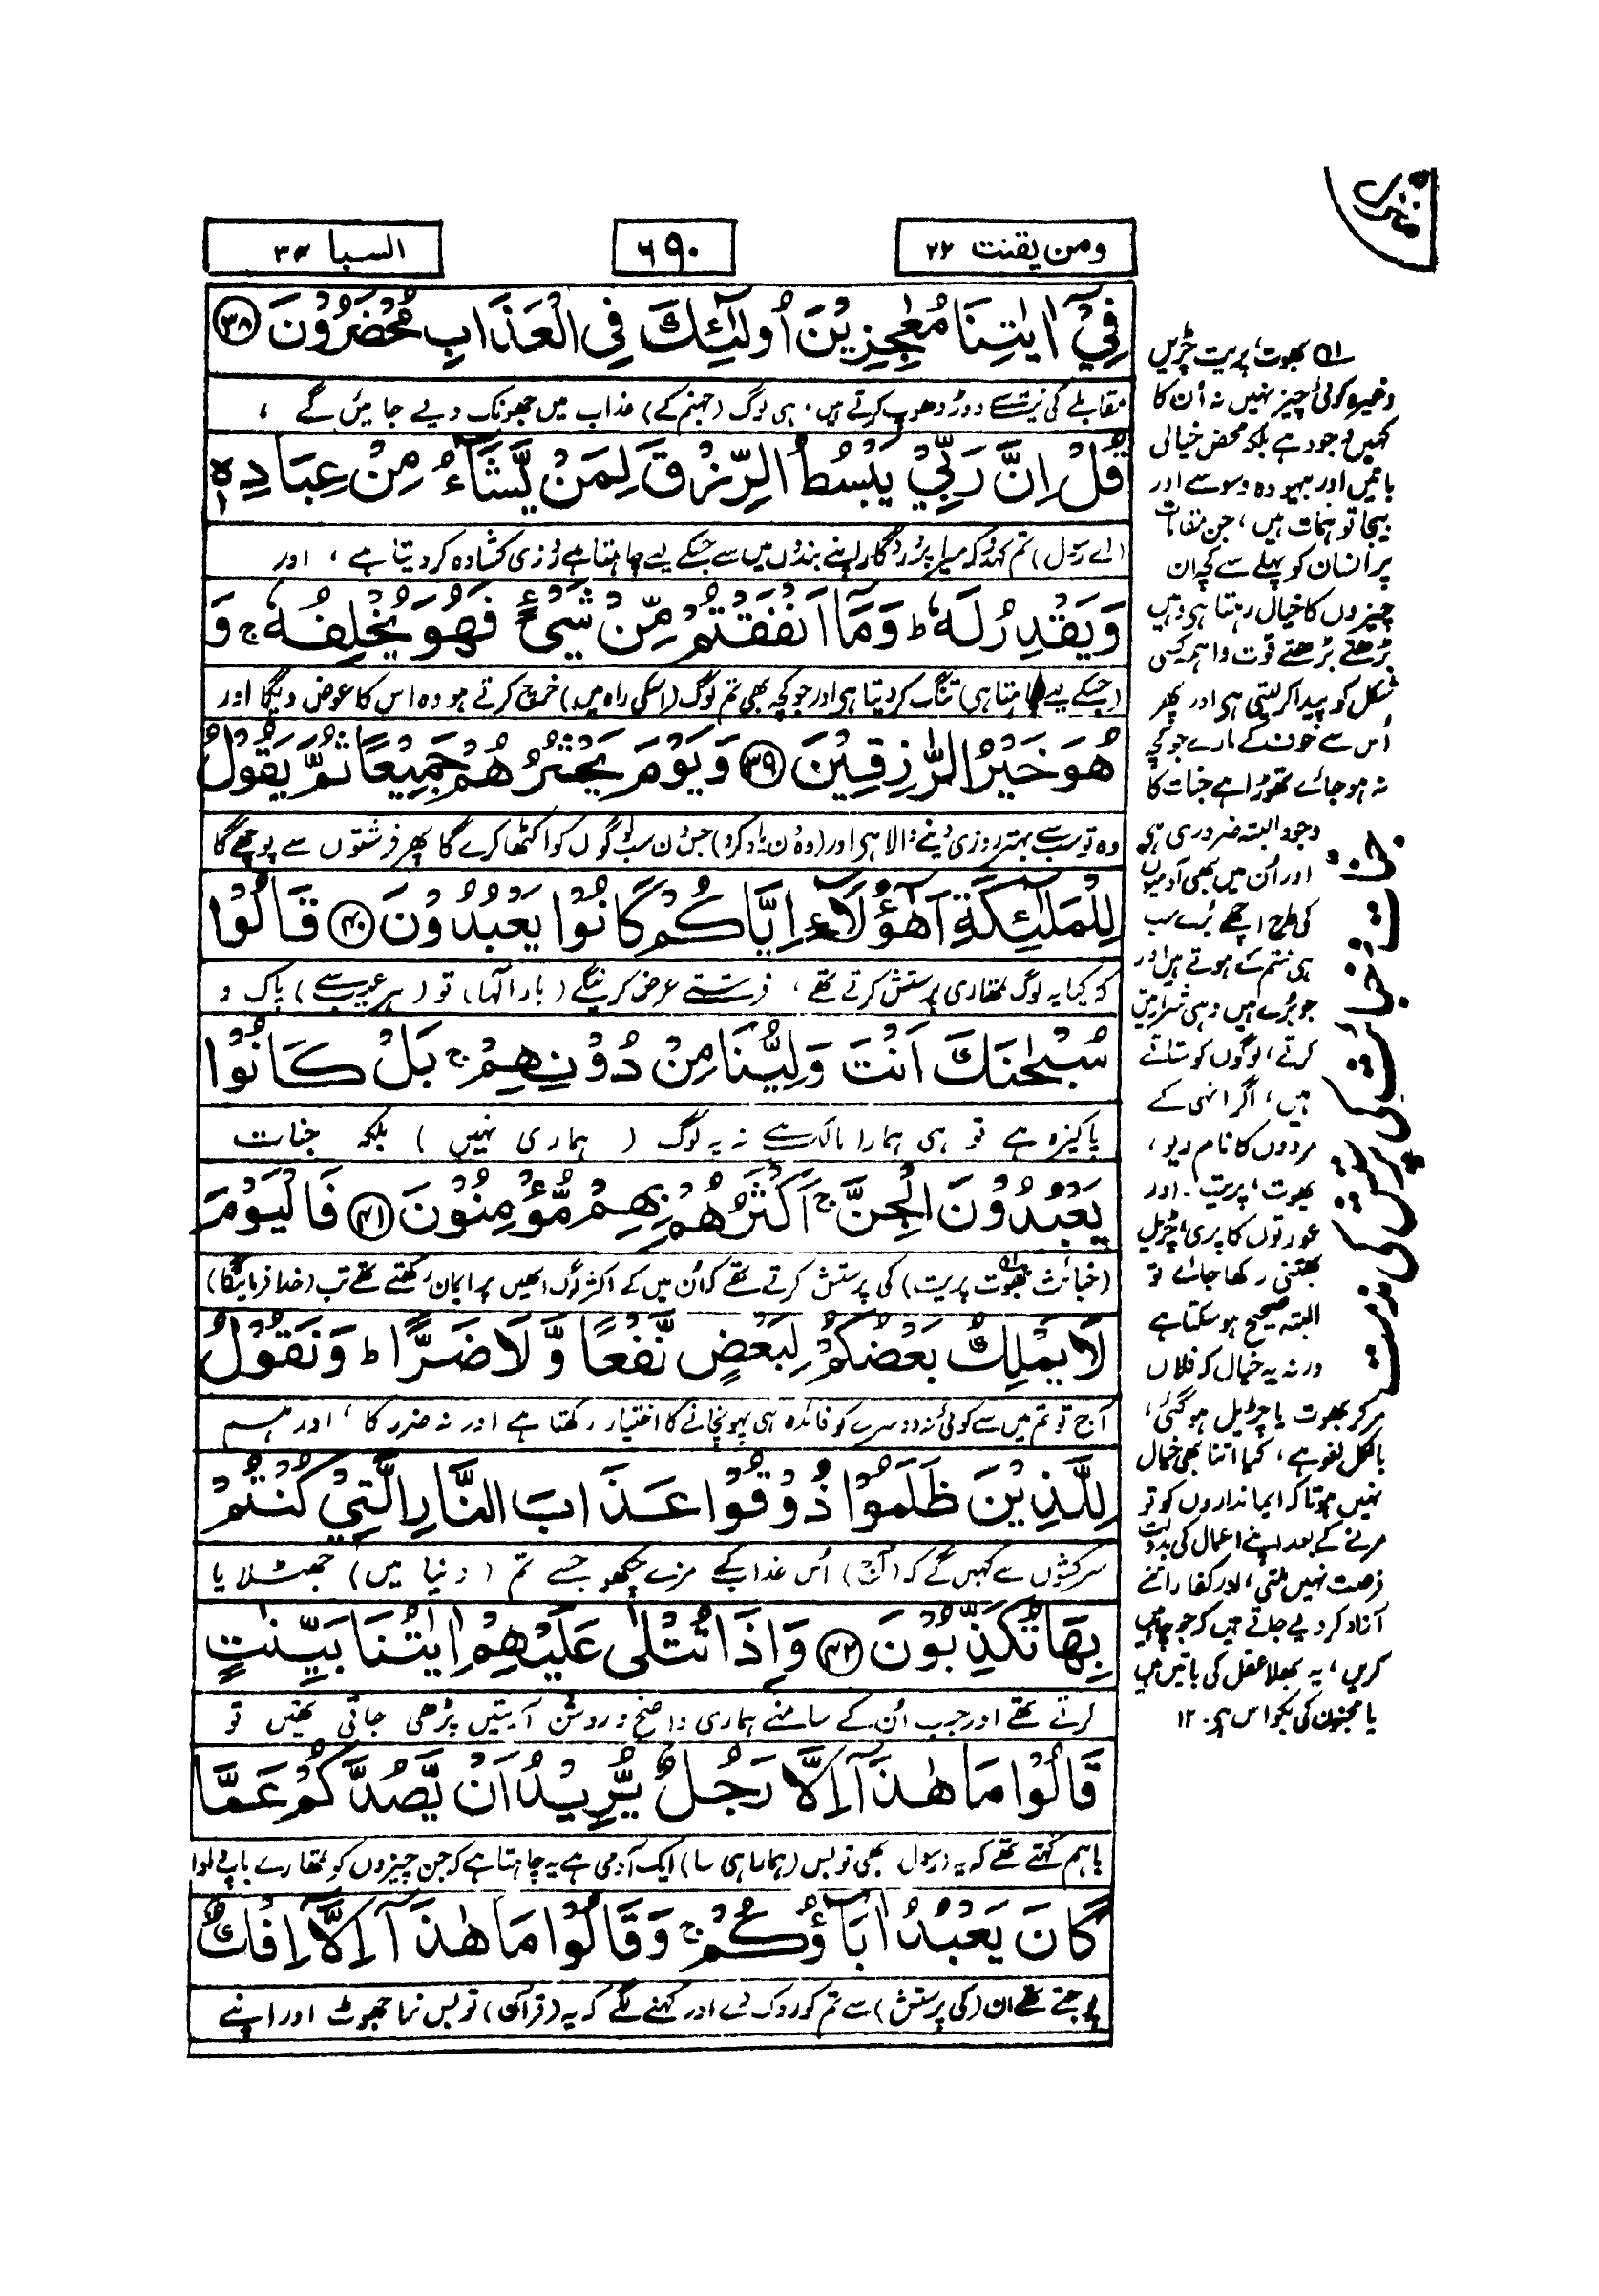 منزل
ومن یقنت ۲۲
۶۹۰
السبا ۳۴
فِيْٓ اٰيٰتِنَا مُعٰجِزِيْنَ اُولٰٓئِكَ فِي الْعَذَابِ مُحْضَرُوْنَ ﴿۳۸﴾
مقابلے کی نیت سے دوڑ دھوپ کرتے ہیں۔ یہی لوگ (جہنم کے) عذاب میں جھونک دیے جائیں گے ،
قُلْ اِنَّ رَبِّيْ يَبْسُطُ الرِّزْقَ لِمَنْ يَّشَآءُ مِنْ عِبَادِهٖ
(اے رسول) تم کہدو کہ میرا پروردگار اپنے بندوں میں سے جسکے لیے چاہتا ہے روزی کشادہ کر دیتا ہے ، اور
وَيَقْدِرُ لَهٗ ؕ وَمَآ اَنْفَقْتُمْ مِّنْ شَيْءٍ فَهُوَ يُخْلِفُهٗ ۚ وَ
(جسکے لیے چاہتا ہی) تنگ کر دیتا ہی اور جو کچھ بھی تم لوگ (اسکی راہ میں) خرچ کرتے ہو وہ اس کا عوض دیگا اور
هُوَ خَيْرُ الرّٰزِقِيْنَ ﴿۳۹﴾ وَيَوْمَ يَحْشُرُهُمْ جَمِيْعًا ثُمَّ يَقُوْلُ
وہ تو سب سے بہتر روزی دینے والا ہی اور (وہ دن یاد کرو) جس دن سب لوگوں کو اکٹھا کرے گا پھر فرشتوں سے پوچھے گا
لِلْمَلٰٓئِكَةِ اَهٰٓؤُلَآءِ اِيَّاكُمْ كَانُوْا يَعْبُدُوْنَ ﴿۴۰﴾ قَالُوْا
کہ کیا یہ لوگ تمھاری پرستش کرتے تھے ، فرشتے عرض کرینگے (بار الٰہا) تو (ہر عیب سے) پاک و
سُبْحٰنَكَ اَنْتَ وَلِيُّنَا مِنْ دُوْنِهِمْ ۚ بَلْ كَانُوْا
پاکیزہ ہے تو ہی ہمارا مالک ہے نہ یہ لوگ ( ہماری نہیں ) بلکہ جنات
يَعْبُدُوْنَ الْجِنَّ ۚ اَكْثَرُهُمْ بِهِمْ مُّؤْمِنُوْنَ ﴿۴۱﴾ فَالْيَوْمَ
(خبائث بھوت پریت) کی پرستش کرتے تھے کہ اُن میں کے اکثر لوگ انھیں پر ایمان رکھتے تھے تب (خدا فرمائیگا)
لَا يَمْلِكُ بَعْضُكُمْ لِبَعْضٍ نَّفْعًا وَّلَا ضَرًّا ؕ وَنَقُوْلُ
آج تو تم میں سے کوئی نہ دوسرے کو فائدہ ہی پہونچانے کا اختیار رکھتا ہے اور نہ ضرر کا ، اور ہم
لِلَّذِيْنَ ظَلَمُوْا ذُوْقُوْا عَذَابَ النَّارِ الَّتِيْ كُنْتُمْ
سرکشوں سے کہیں گے کہ (آج) اُس عذاب کے مزے چکھو جسے تم ( دنیا میں) جھٹلایا
بِهَا تُكَذِّبُوْنَ ﴿۴۲﴾ وَاِذَا تُتْلٰى عَلَيْهِمْ اٰيٰتُنَا بَيِّنٰتٍ
کرتے تھے اور جب اُن کے سامنے ہماری واضح و روشن آیتیں پڑھی جاتی تھیں تو
قَالُوْا مَا هٰذَآ اِلَّا رَجُلٌ يُّرِيْدُ اَنْ يَّصُدَّكُمْ عَمَّا
باہم کہتے تھے کہ یہ (رسول بھی تو بس (ہمارا ہی سا) ایک آدمی ہے یہ چاہتا ہے کہ جن چیزوں کو تمھارے باپ دادا
كَانَ يَعْبُدُ اٰبَآؤُكُمْ ۚ وَقَالُوْا مَا هٰذَآ اِلَّآ اِفْكٌ
پوجتے تھے ان (کی پرستش) سے تم کو روک دے اور کہنے لگے کہ یہ (قرآن) تو بس نرا جھوٹ اور اپنے
۵۱ بھوت، پریت چڑیل
وغیرہ کوئی چیز نہیں نہ اُن کا
کہیں وجود ہے بلکہ محض خیالی
باتیں اور بیہودہ وسوسے اور
بیجا توہمات ہیں، جن مقامات
پر انسان کو پہلے سے کچھ ان
چیزوں کا خیال رہتا ہی وہیں
بڑھتے بڑھتے قوت واہمہ کسی
شکل کو پیدا کر لیتی ہی اور پھر
اُس سے خوف کے مارے جو کچھ
نہ ہو جائے تھوڑا ہے جنات کا
وجود البتہ ضروری ہی
اور اُن میں بھی آدمیوں
کی طرح اچھے بُرے سب
ہی قسم کے ہوتے ہیں اور
جو بُرے ہیں وہی شرارتیں
کرتے، لوگوں کو ستاتے
ہیں، اگر انہی کے
مردوں کا نام دیو،
بھوت، پریت۔ اور
عورتوں کا پری، چڑیل
بھتنی رکھا جائے تو
البتہ صحیح ہو سکتا ہے
ورنہ یہ خیال کہ فلاں
مر کر بھوت یا چڑیل ہو گئی،
بالکل لغو ہے، کیا اتنا بھی خیال
نہیں ہوتا کہ ایمانداروں کو تو
مرنے کے بعد اپنے اعمال کی بدولت
فرصت نہیں ملتی، اور کفار اتنے
آزاد کر دیے جاتے ہیں کہ جو چاہیں
کریں، یہ بھلا عقل کی باتیں ہیں
یا مجنون کی بکواس ہی۔ ۱۲
جنات خباثت کی پرستش کی مذمت